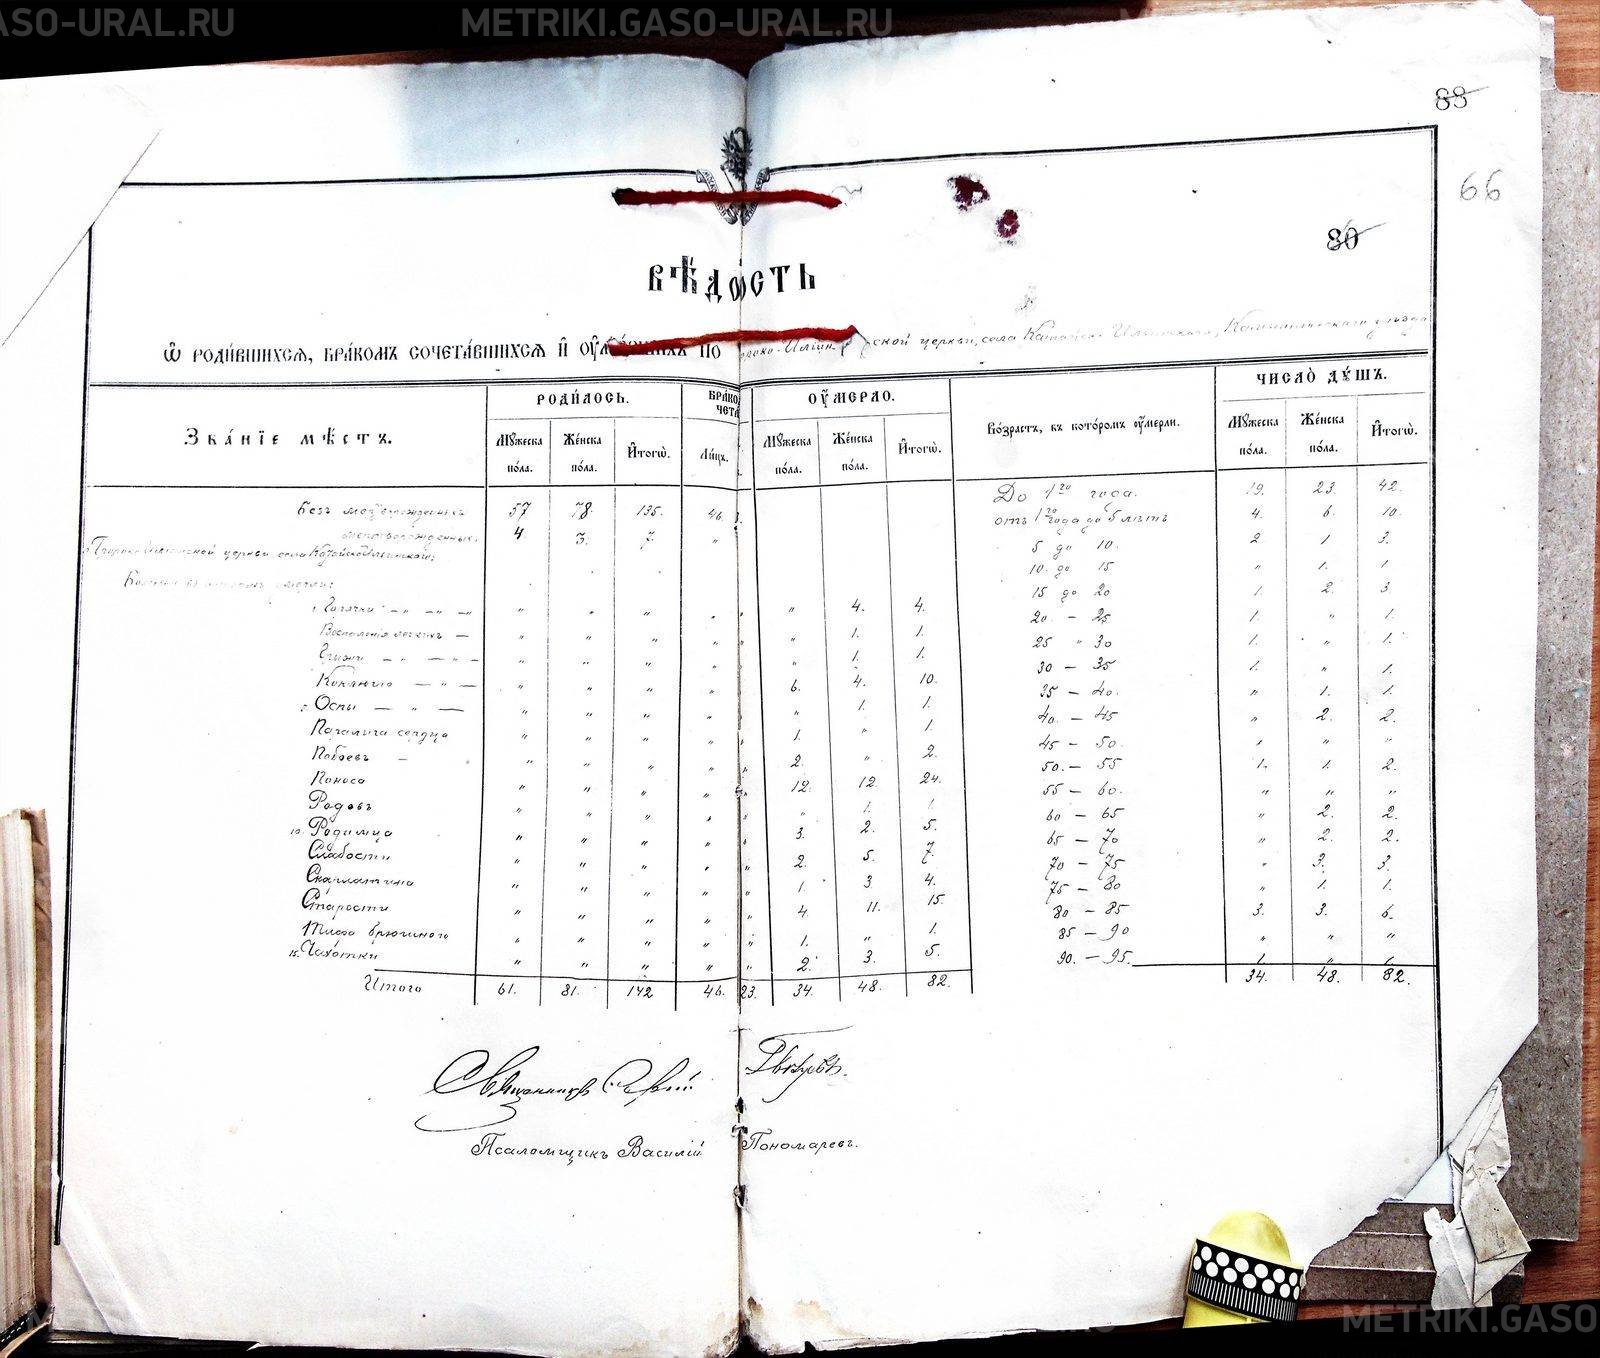 METRIKI.GASO-URAL.RU
88
66
80
ВѢДОМОСТЬ
Ѡ РОДИВШИХСЯ, БРАКОМЪ СОЧЕТАВШИХСЯ И ОУМЕРШИХЪ ПО ской церкви, села
ЗВАНІЕ МѢСТЪ. РОДИЛОСЬ. ОУМЕРЛО. Возрастъ, въ которомъ оумерли. ЧИСЛО ДУШЪ.
Мужеска пола. Женска пола. Итогѡ. Лицъ. Мужеска пола. Женска пола. Итогѡ. Мужеска пола. Женска пола. Итогѡ.
57 78. 135. 46. До 1го года. 19. 23. 42.
4 3. 7. " отъ 1го года до 5 лѣтъ 4. 6. 10.
церкви села 5 до 10. 2 1 3.
10. до 15 " 1. 1
15 до 20 1. 2. 3.
Горячки " " " " 4. 4. 20. – 25 1. " 1.
Воспаленія легкихъ " " " " 1. 1. 25 " 30 1. " 1.
" " " " 1. 1. 30 – 35 1. " 1.
" " " 6. 4. 10. 35 – 40. " 1. 1.
Оспы " " " " 1. 1. 40. – 45 " 2. 2.
Паралича сердца " " " 1. " 1. 45 – 50. " " "
Побоевъ " " " 2. " 2. 50. – 55 1. 1. 2.
Поноса " " " 12. 12. 24. 55 – 60. " " "
Родовъ " " " " 1. 1. 60 – 65 " 2. 2.
10. Родимца " " " 3. 2. 5. 65 – 70 " 2. 2.
Слабости " " " 2. 5. 7. 70 – 75 " 3. 3.
Скарлатина " " " 1. 3. 4. 75 – 80 " 1. 1.
Старости " " " 4. 11. 15. 80 – 85 3. 3. 6.
Тифа брюшного " " " 1. " 1. 85 – 90 " " "
15. Чахотки " " " 2. 3. 5. 90. – 95. 1. " 1.
Итого 61. 81. 142 46. 23. 34. 48. 82. 34. 48. 82.
Священникъ
Псаломщикъ Василій Пономаревъ.
METRIKI.GASO